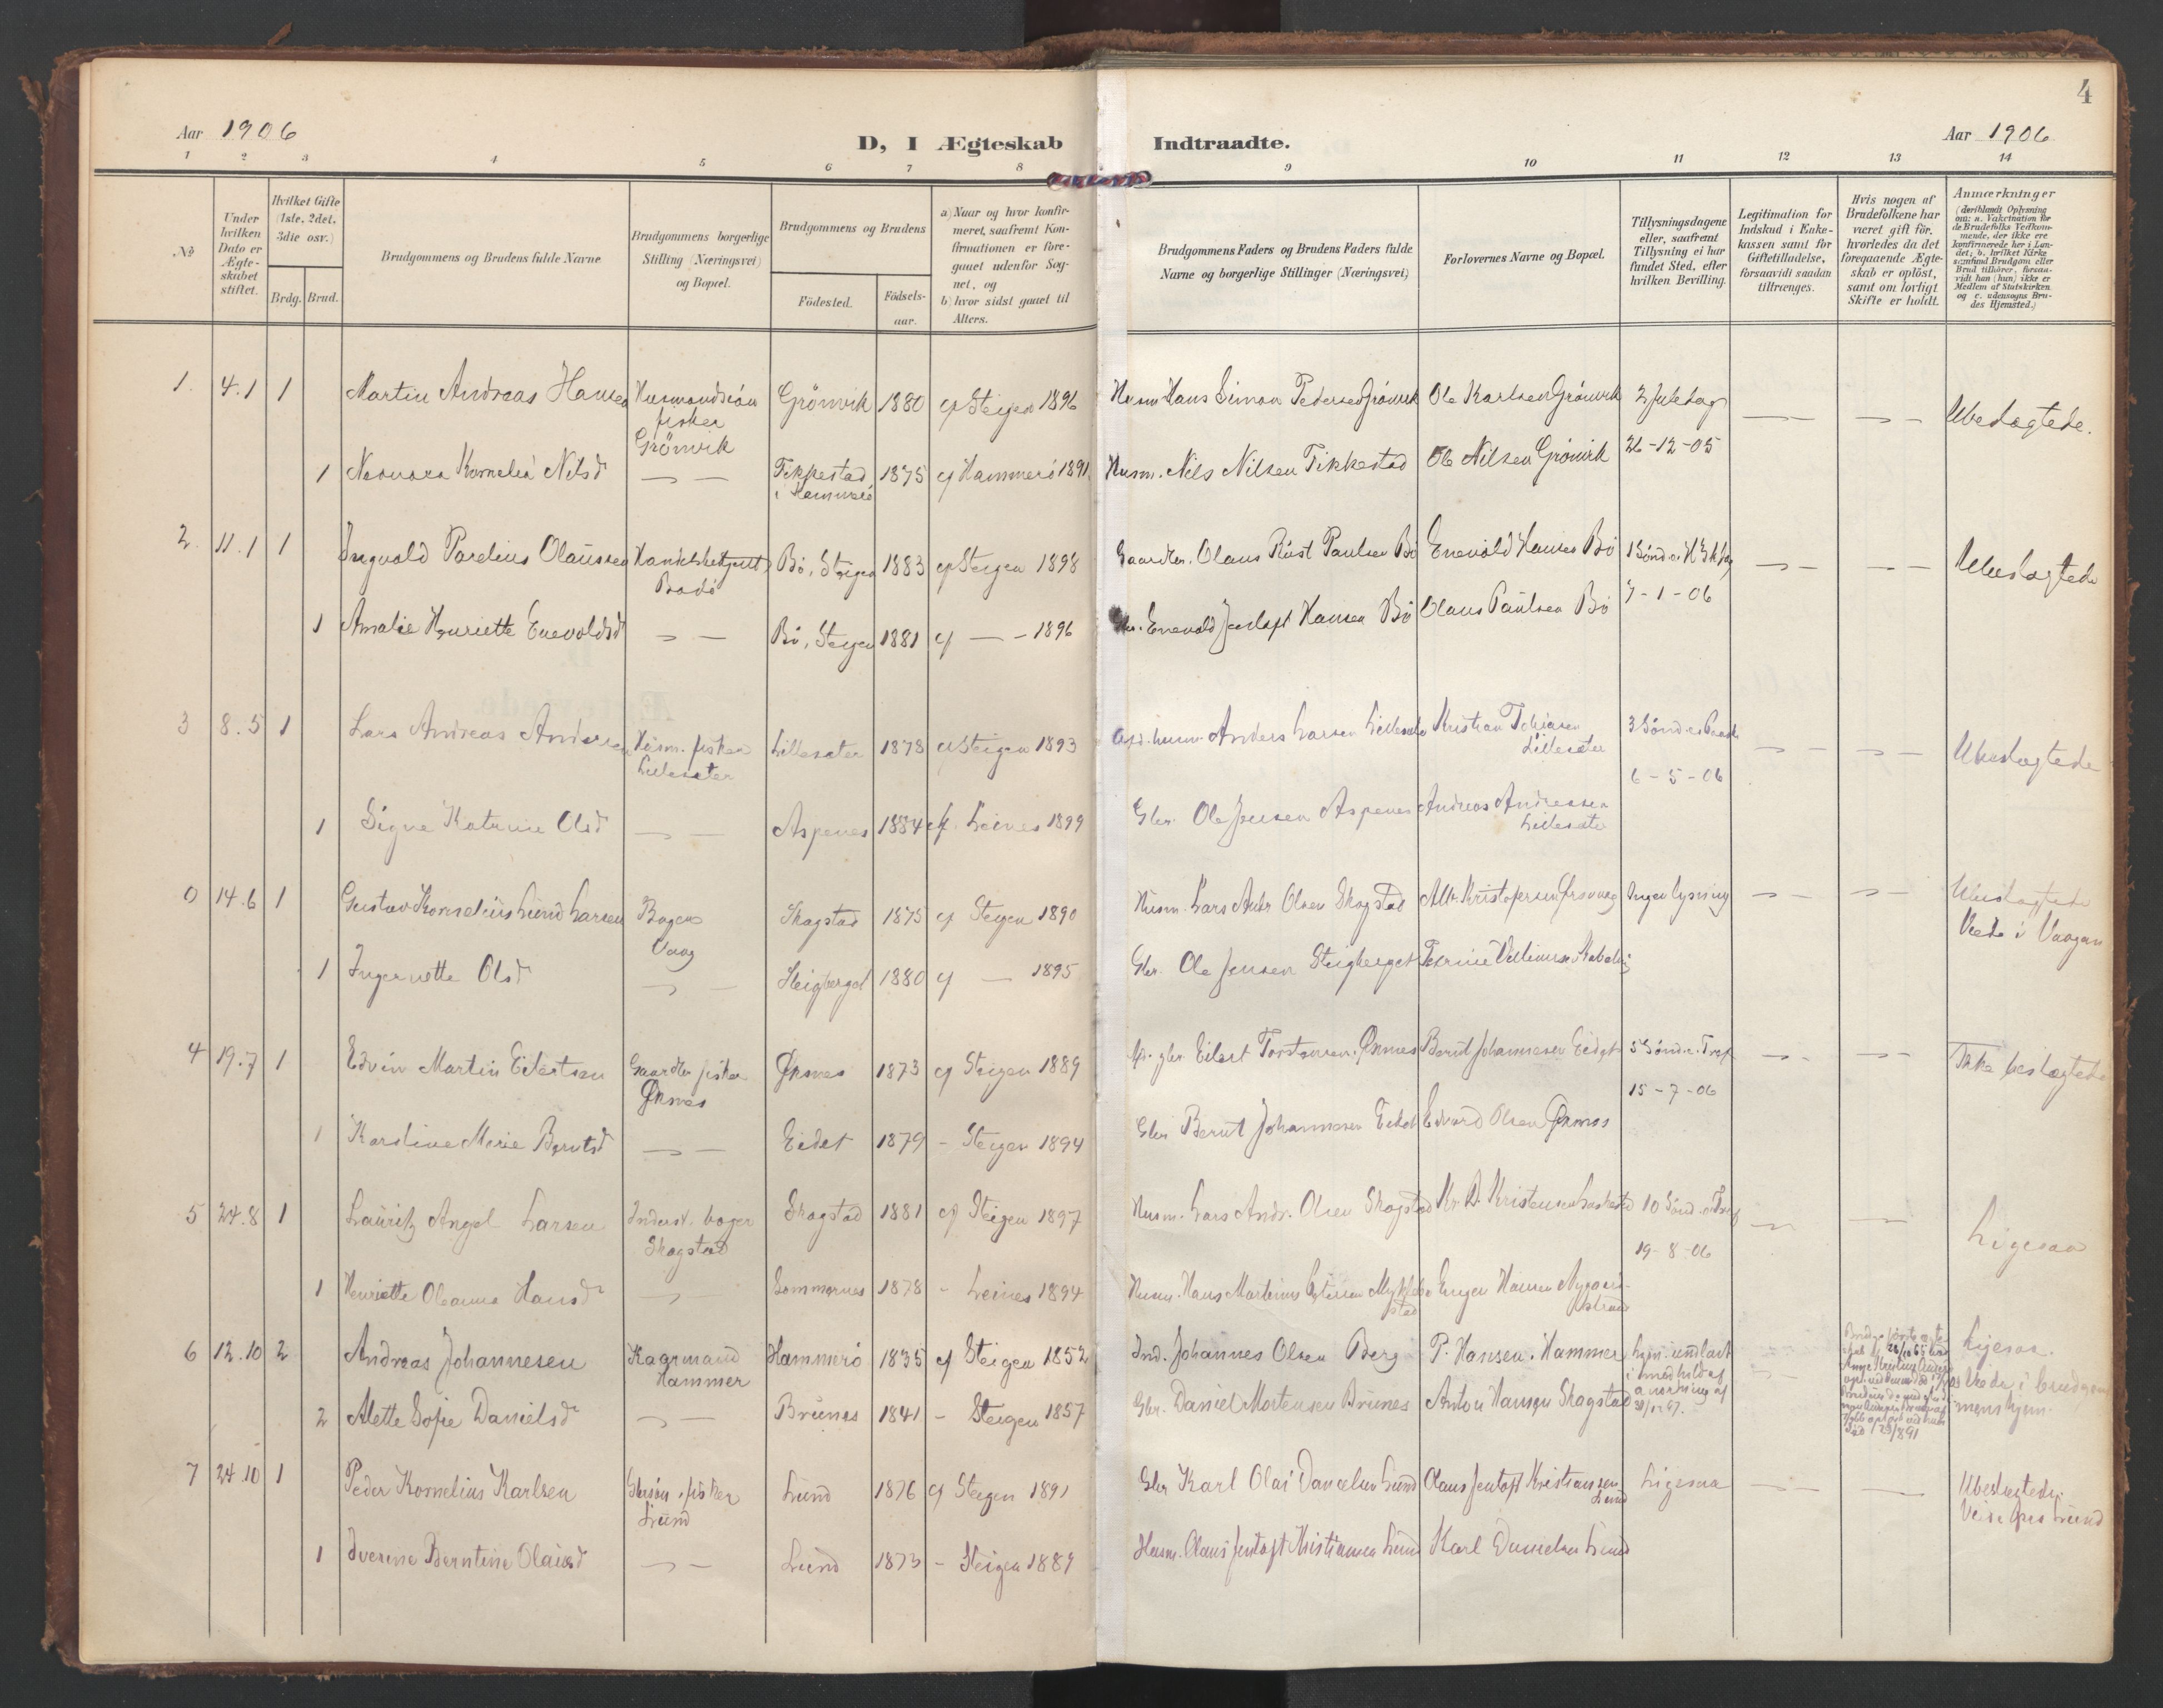 4
Aar 1906
D, I Ægteskab Indtraadte.
Aar 1906
1 2 3 4 5 6 7 8 9 10 11 12 13 14
№
Under hvilken Dato er Ægteskabet stiftet.
Hvilket Gifte (1ste, 2det, 3die osv.)
Brdg. Brud.
Brudgommens og Brudens fulde Navne
Brudgommens borgerlige Stilling (Næringsvei) og Bopæl.
Brudgommens og Brudens
Födested.
Födsels-aar.
a) Naar og hvor konfirmeret, saafremt Konfirmationen er foregaaet udenfor Sognet, og
b) hvor sidst gaaet til Alters.
Brudgommens Faders og Brudens Faders fulde Navne og borgerlige Stillinger (Næringsvei)
Forlovernes Navne og Bopæl.
Tillysningsdagene eller, saafremt Tillysning ei har fundet Sted, efter hvilken Bevilling.
Legitimation for Indskud i Enkekassen samt for Giftetilladelse, forsaavidt saadan tiltrænges.
Hvis nogen af Brudefolkene har været gift för, hvorledes da det foregaaende Ægteskab er oplöst, samt om lovligt Skifte er holdt.
Anmærkninger
(deriblandt Oplysning om: a. Vakcination for de Brudefolks Vedkommende, der ikke ere konfirmerede her i Landet; b. hvilket Kirkesamfund Brudgom eller Brud tilhörer, forsaavidt han (hun) ikke er Medlem af Statskirken og c. udensogns Brudes Hjemsted.)
1. 4.1 1 Martin Andreas Hansen Husmandssön fisker Grönvik Grönvik 1880 cf Steigen 1896 Husm Hans Simon Pedersen Grönvik Ole Karlsen Grönvik 2 Juledag — — — — Ubeslægtede.
1 Kornelia Nilsd — — Tikkestad i Hammerö 1875 cf Hammerö 1891. Husm. Nils Nilsen Tikkestad Ole Nilsen Grönvik 26-12-05
2. 11.1 1 Ingvald Parelius Olaussen Handelsbetjent, Bodö Bö, Steigen 1883 cf Steigen 1898 Gaardbr. Olaus Röst Paulsen Bö Enevold Hansen Bö 1 Sönd. e. H3kdag — — — — Ubeslægtede
1 Amalie Henriette Enevoldsd — — Bö, Steigen 1881 cf — — 1896 Gbr. Enevold Jentoft Hansen Bö Olaus Paulsen Bö 7-1-06
3 8.5 1 Lars Andreas Andersen Husm. fisker Lillesæter Lillesæter 1878 cf Steigen 1893 husm. Anders Larsen Lillesæter Kristian Tobiasen Lillesæter 3 Sönd. e. Paaske — — — — Ubeslægtede
6-5-06
1 Signe Katrine Olsd — — Aspenes 1884 cf. Leines 1899 Gbr. Ole Jensen Aspenes Andreas Andreassen Lillesæter
0 14.6 1 Gustav Kornelius Lund Larsen Bager Vaag Skagstad 1875 cf Steigen 1890 Husm. Lars Andr Olsen Skagstad Alb. Kristofersen Ingen lysning — — — — Ubeslægtede
Viede i Vaagan
1 Ingernette Olsd — — Steigberget 1880 cf — 1895 Gbr. Ole Jensen Steigberget
4 19.7 1 Edvin Martin Eilertsen Gaardbr fisker Öknes Öknes 1873 cf Steigen 1889 gbr. Eilert Torstensen Öknes Bernt Johannesen Eidet 5 Sönd. e. Tref — — — — Ikke beslægtede
15-7-06
1 Karoline Marie Berntsd — — Eidet 1879 - Steigen 1894 Gbr Bernt Johannesen Eidet Edvard Olsen Öknes
5 24.8 1 Lauritz Angel Larsen Inderst. bager Skagstad Skagstad 1881 cf Steigen 1897 Husm. Lars Andr. Olsen Skagstad Kr. A. Kristensen 10 Sönd. e. Tref — — Ligesaa
19-8-06
1 Henriette Oleanna Hansd — Sommernes 1878 - Leines 1894 Husm. Hans Martinus Hansen
6 12.10 2 Andreas Johannesen Kaarmand Hammer Hammerö 1835 cf Steigen 1852 Ind. Johannes Olsen Berg P. Hansen. Hammer Lysn. undladt i medhold af anordning af — — Ligesaa.
Viede i brudgommens hjem.
2 Alette Sofie Danielsd — — Brunes 1841 - Steigen 1857 Gbr. Daniel Mortensen Brunes Anton Hansen Skagstad
7 24.10 1 Peder Kornelius Karlsen Gbrsön. fisker Lund Lund 1876 cf Steigen 1891 Gbr Karl Olai Danielsen Lund Olaus Jentoft Kristiansen Lund Ligesaa — — — Ubeslægtede.
1 Iverine Berntine Olausd — — Lund 1873 - Steigen 1889 Husm. Olaus Jentoft Kristiansen Lund Karl Danielsen Lund